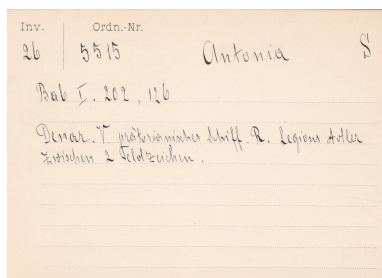 Inv. Ordn.-Nr.
26 5515 Antonia S
Bab I. 202, 126
Denar. V prätorianisches Schiff. R. Legions Adler
zwischen 2 Feldzeichen.